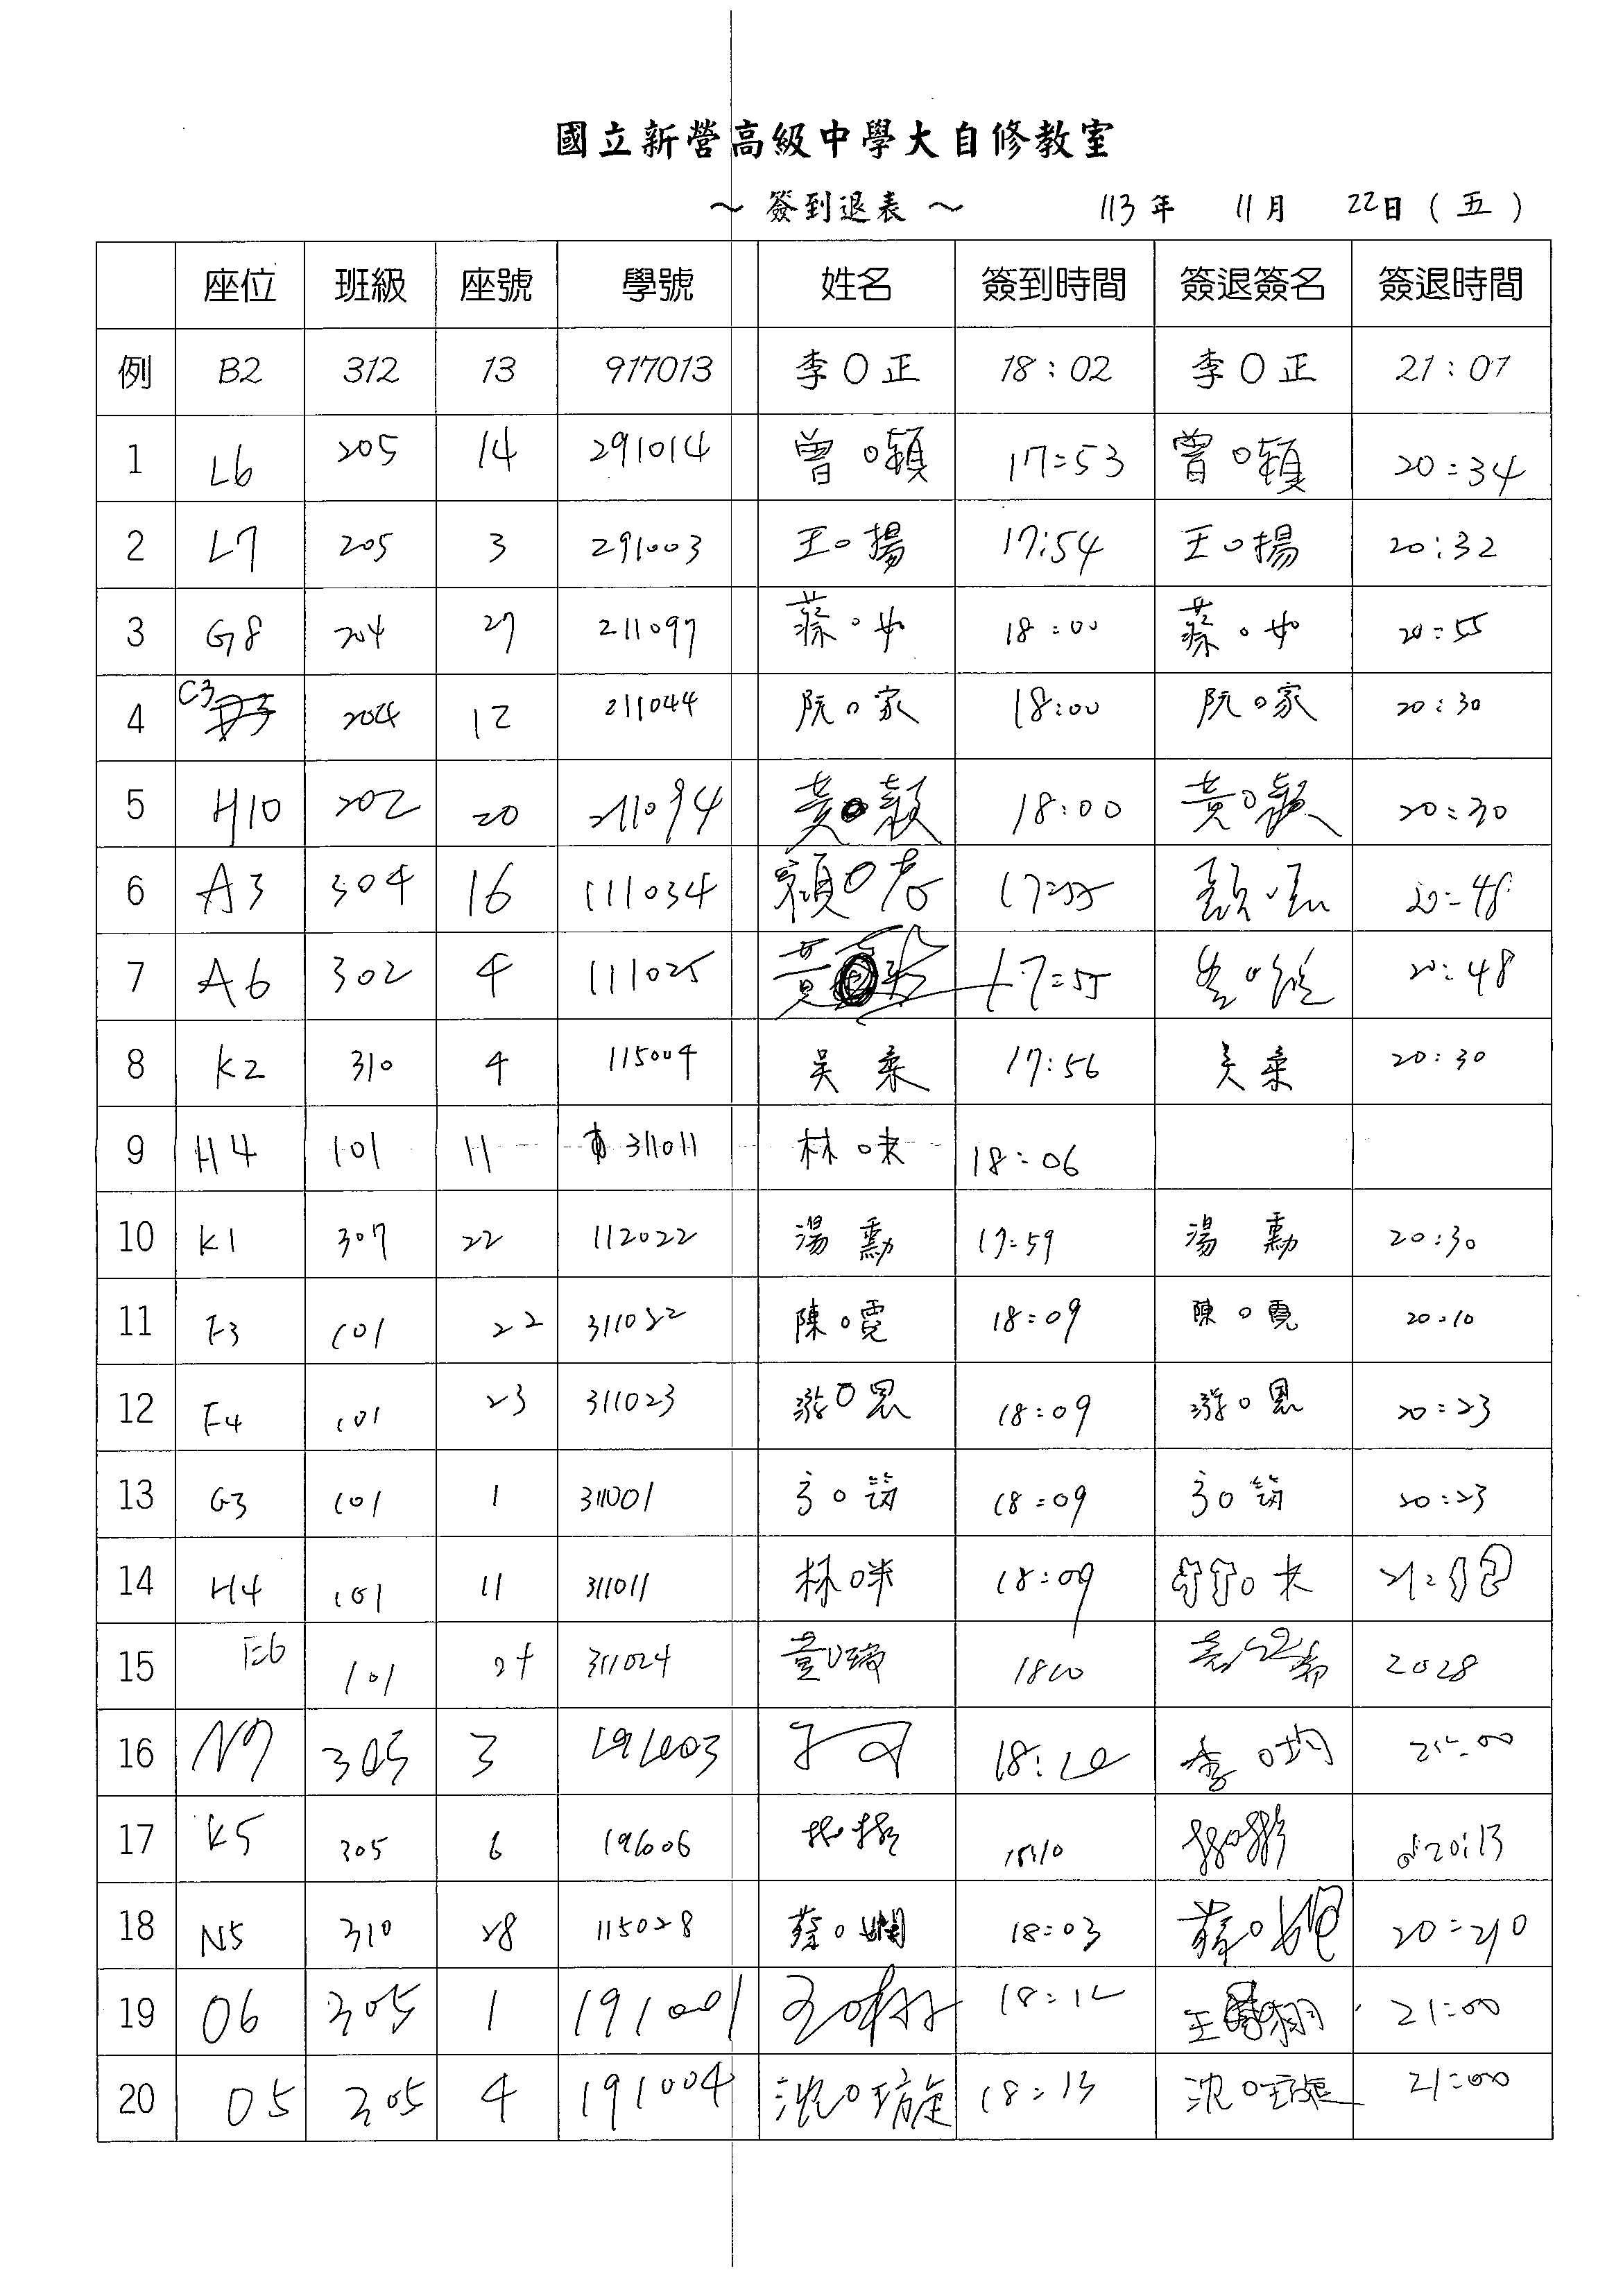 國立新營高級中學大自修教室
～ 簽到退表 ～ 113年 11月 22日 ( 五 )
座位 班級 座號 學號 姓名 簽到時間 簽退簽名 簽退時間
例 B2 312 13 917013 李O正 18:02 李O正 21:07
1 L6 205 14 291014 曾O穎 17:53 曾O穎 20:34
2 L7 205 3 291003 王O揚 17:54 王O揚 20:32
3 G8 204 27 211097 蔡O 18:00 蔡O 20:55
4 C3 204 12 211044 阮O家 18:00 阮O家 20:30
5 H10 202 20 211094 黃O 18:00 黃O 20:30
6 A3 304 16 111034 顏O 17:55 顏O 20:48
7 A6 302 4 111025 黃 17:55 20:48
8 K2 310 4 115004 吳 柔 17:56 吳 柔 20:30
9 H4 101 11 311011 林O 18:06
10 K1 307 22 112022 湯 勳 17:59 湯 勳 20:30
11 F3 101 22 311022 陳O霓 18:09 陳O霓 20:10
12 F4 101 23 311023 O恩 18:09 O恩 20:23
13 G3 101 1 311001 O筠 18:09 O筠 20:23
14 H4 101 11 311011 林O 18:09
15 E6 101 24 311024 黃O 1810 2028
16 N7 305 3 191003 18:10 李O均 21:00
17 K5 305 6 18:10 20:13
18 N5 310 28 115028 蔡O嫻 18:03 蔡O 20:20
19 O6 305 1 191001 王O 18:12 王 翔 21:00
20 O5 305 4 191004 沈O璇 18:13 沈O璇 21:00